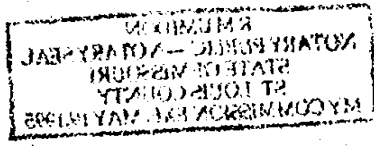 R M LUMDON
NOTARY PUBLIC — NOTARY SEAL
STATE OF MISSOURI
ST. LOUIS COUNTY
MY COMMISSION EXP. MAY 19,1995